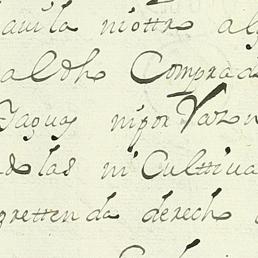 avila ni ottro alg
aldho Comprad
Taguas ni por Razon
das las ni Cultiva
prettenda derecho